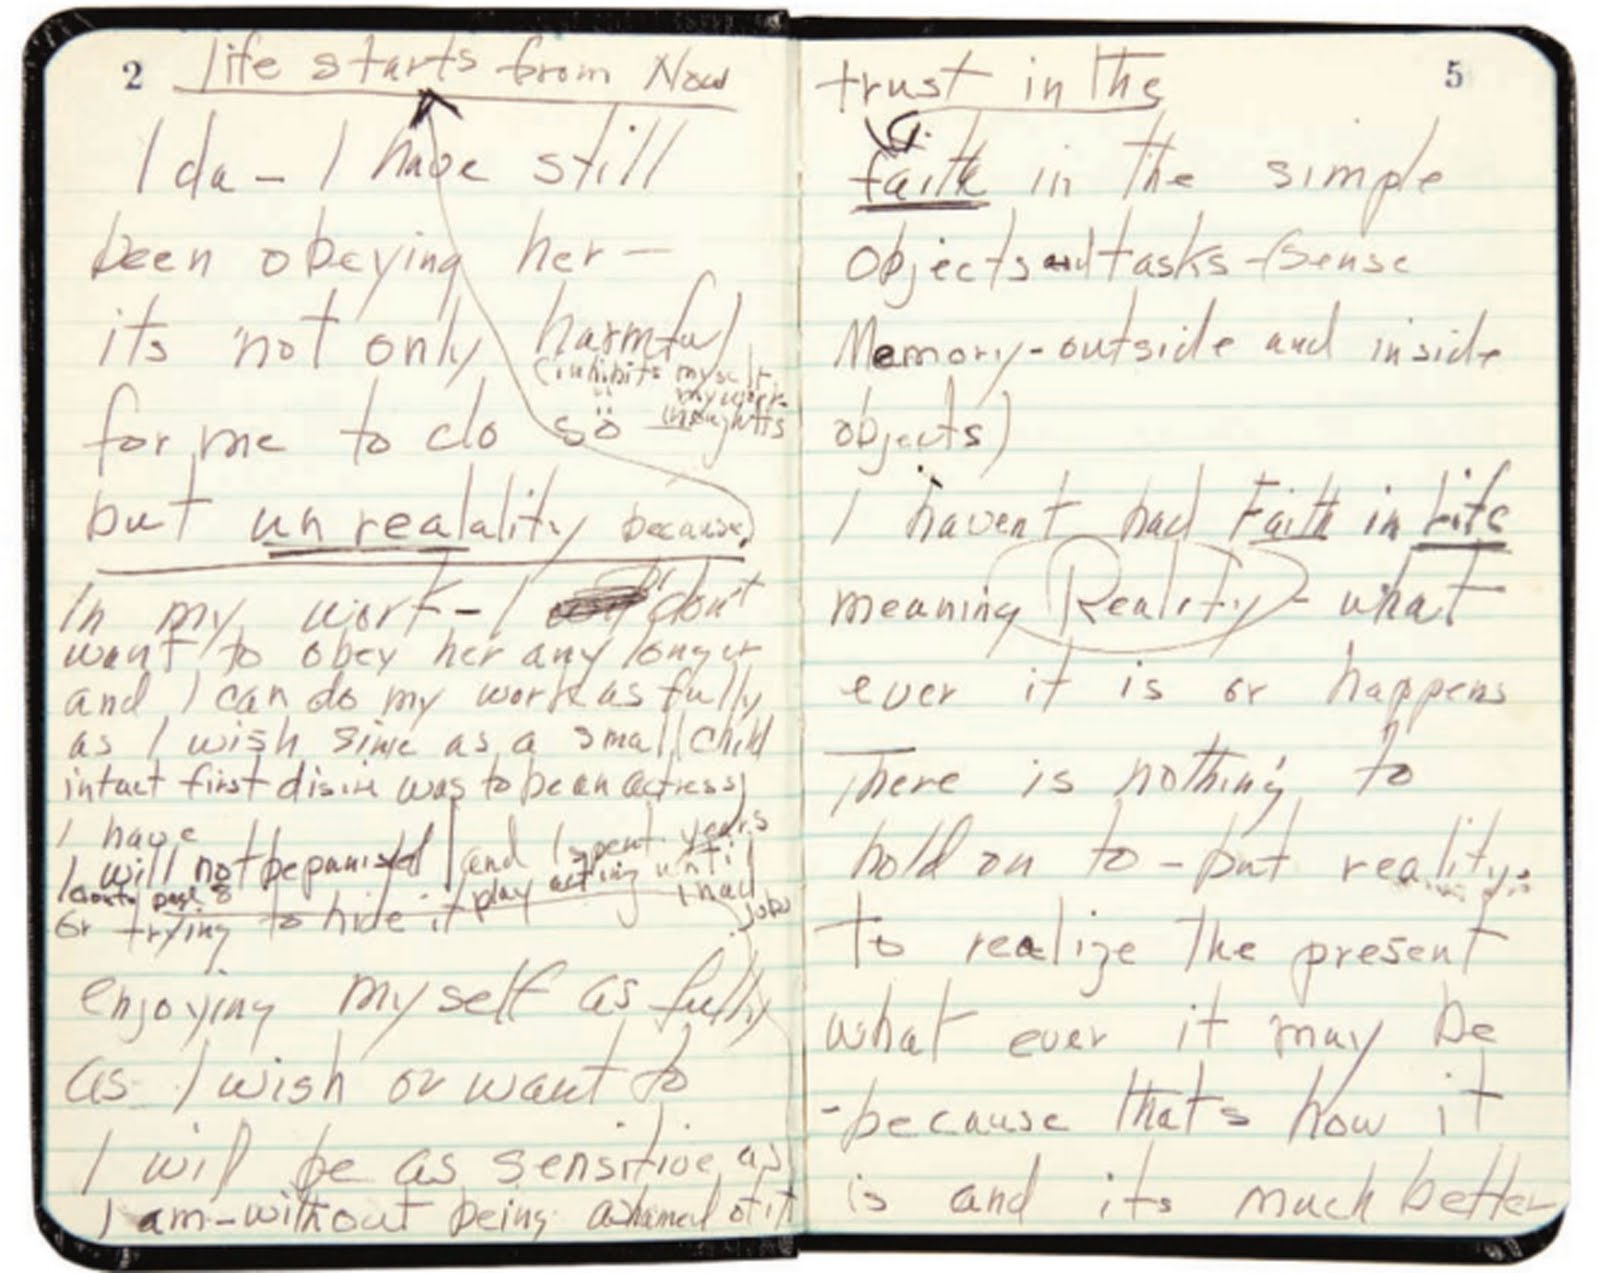 2
life starts from Now
Ida – I have still
been obeying her –
its not only harmful
(inhibits myself,
my work
thoughts
for me to do so
but unrealality because
In my work – I don't
want to obey her any longer
and I can do my work as fully
as I wish since as a small child
intact first disire was to be an actress
I have
I will not be punished
and I spent years
play acting until
I had
jobs
page 8
or trying to hide it
enjoying myself as fully
as I wish or want to
I will be as sensitive as
I am – without being ashamed of it
5
trust in the
faith in the simple
objects and tasks – (sense
Memory – outside and inside
objects)
I havent had Faith in Life
meaning Reality – what
ever it is or happens
There is nothing to
hold on to – but reality.
to realize the present
what ever it may be
– because thats how it
is and its much better